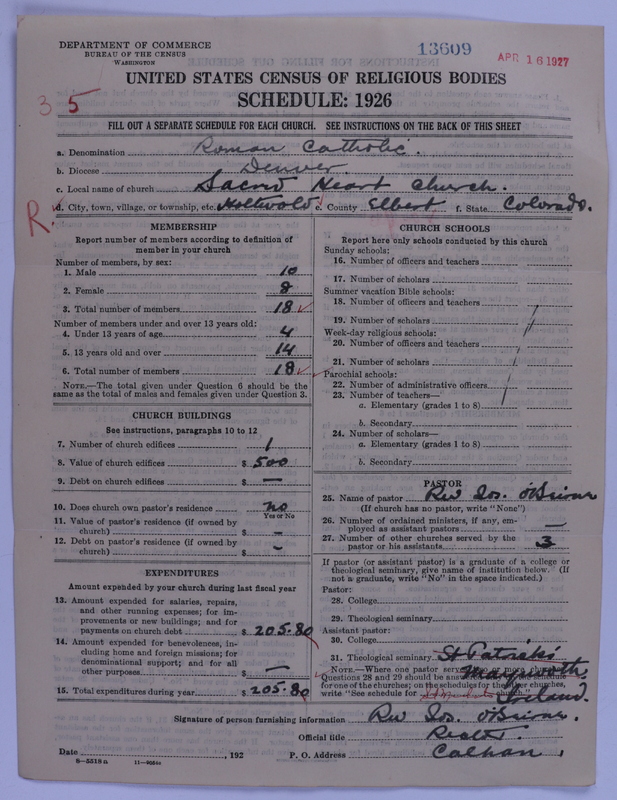 DEPARTMENT OF COMMERCE
BUREAU OF THE CENSUS
WASHINGTON
13609
APR 16 1927
UNITED STATES CENSUS OF RELIGIOUS BODIES
SCHEDULE: 1926
35
FILL OUT A SEPARATE SCHEDULE FOR EACH CHURCH. SEE INSTRUCTIONS ON THE BACK OF THIS SHEET
a. Denomination Roman Catholic.
b. Diocese Denver.
c. Local name of church Sacred Heart Church.
R
d. City, town, village, or township, etc. e. County Elbert f. State Colorado.
MEMBERSHIP
Report number of members according to definition of
member in your church
Number of members, by sex:
1. Male 10
2. Female 8
3. Total number of members 18 ✓
Number of members under and over 13 years old:
4. Under 13 years of age 4
5. 13 years old and over 14
6. Total number of members 18 ✓
NOTE.—The total given under Question 6 should be the
same as the total of males and females given under Question 3.
CHURCH BUILDINGS
See instructions, paragraphs 10 to 12
7. Number of church edifices 1
8. Value of church edifices $ 500
9. Debt on church edifices $ —
10. Does church own pastor's residence no
Yes or No
11. Value of pastor's residence (if owned by
church) $ -
12. Debt on pastor's residence (if owned by
church) $ -
EXPENDITURES
Amount expended by your church during last fiscal year
13. Amount expended for salaries, repairs,
and other running expenses; for im-
provements or new buildings; and for
payments on church debt $ 205.80
14. Amount expended for benevolences, in-
cluding home and foreign missions; for
denominational support; and for all
other purposes $ —
15. Total expenditures during year $ 205.80
CHURCH SCHOOLS
Report here only schools conducted by this church
Sunday schools:
16. Number of officers and teachers
17. Number of scholars
Summer vacation Bible schools:
18. Number of officers and teachers
19. Number of scholars
Week-day religious schools:
20. Number of officers and teachers
21. Number of scholars
Parochial schools:
22. Number of administrative officers
23. Number of teachers—
a. Elementary (grades 1 to 8)
b. Secondary
24. Number of scholars—
a. Elementary (grades 1 to 8)
b. Secondary
PASTOR
25. Name of pastor Rev Jos. O'Brien
(If church has no pastor, write "None")
26. Number of ordained ministers, if any, em-
ployed as assistant pastors —
27. Number of other churches served by the
pastor or his assistants 3
If pastor (or assistant pastor) is a graduate of a college or
theological seminary, give name of institution below. (If
not a graduate, write "No" in the space indicated.)
Pastor:
28. College
29. Theological seminary
Assistant pastor:
30. College
31. Theological seminary St Patricks
Maynooth,
Ireland.
NOTE.—Where one pastor serves two or more churches,
Questions 28 and 29 should be answered on the schedule
for one of the churches; on the schedules for the other churches,
write "See schedule for church."
Signature of person furnishing information Rev Jos. O'Brien.
Official title Rector.
Date , 192 P. O. Address Calhan,
8—5518a 11—9084c